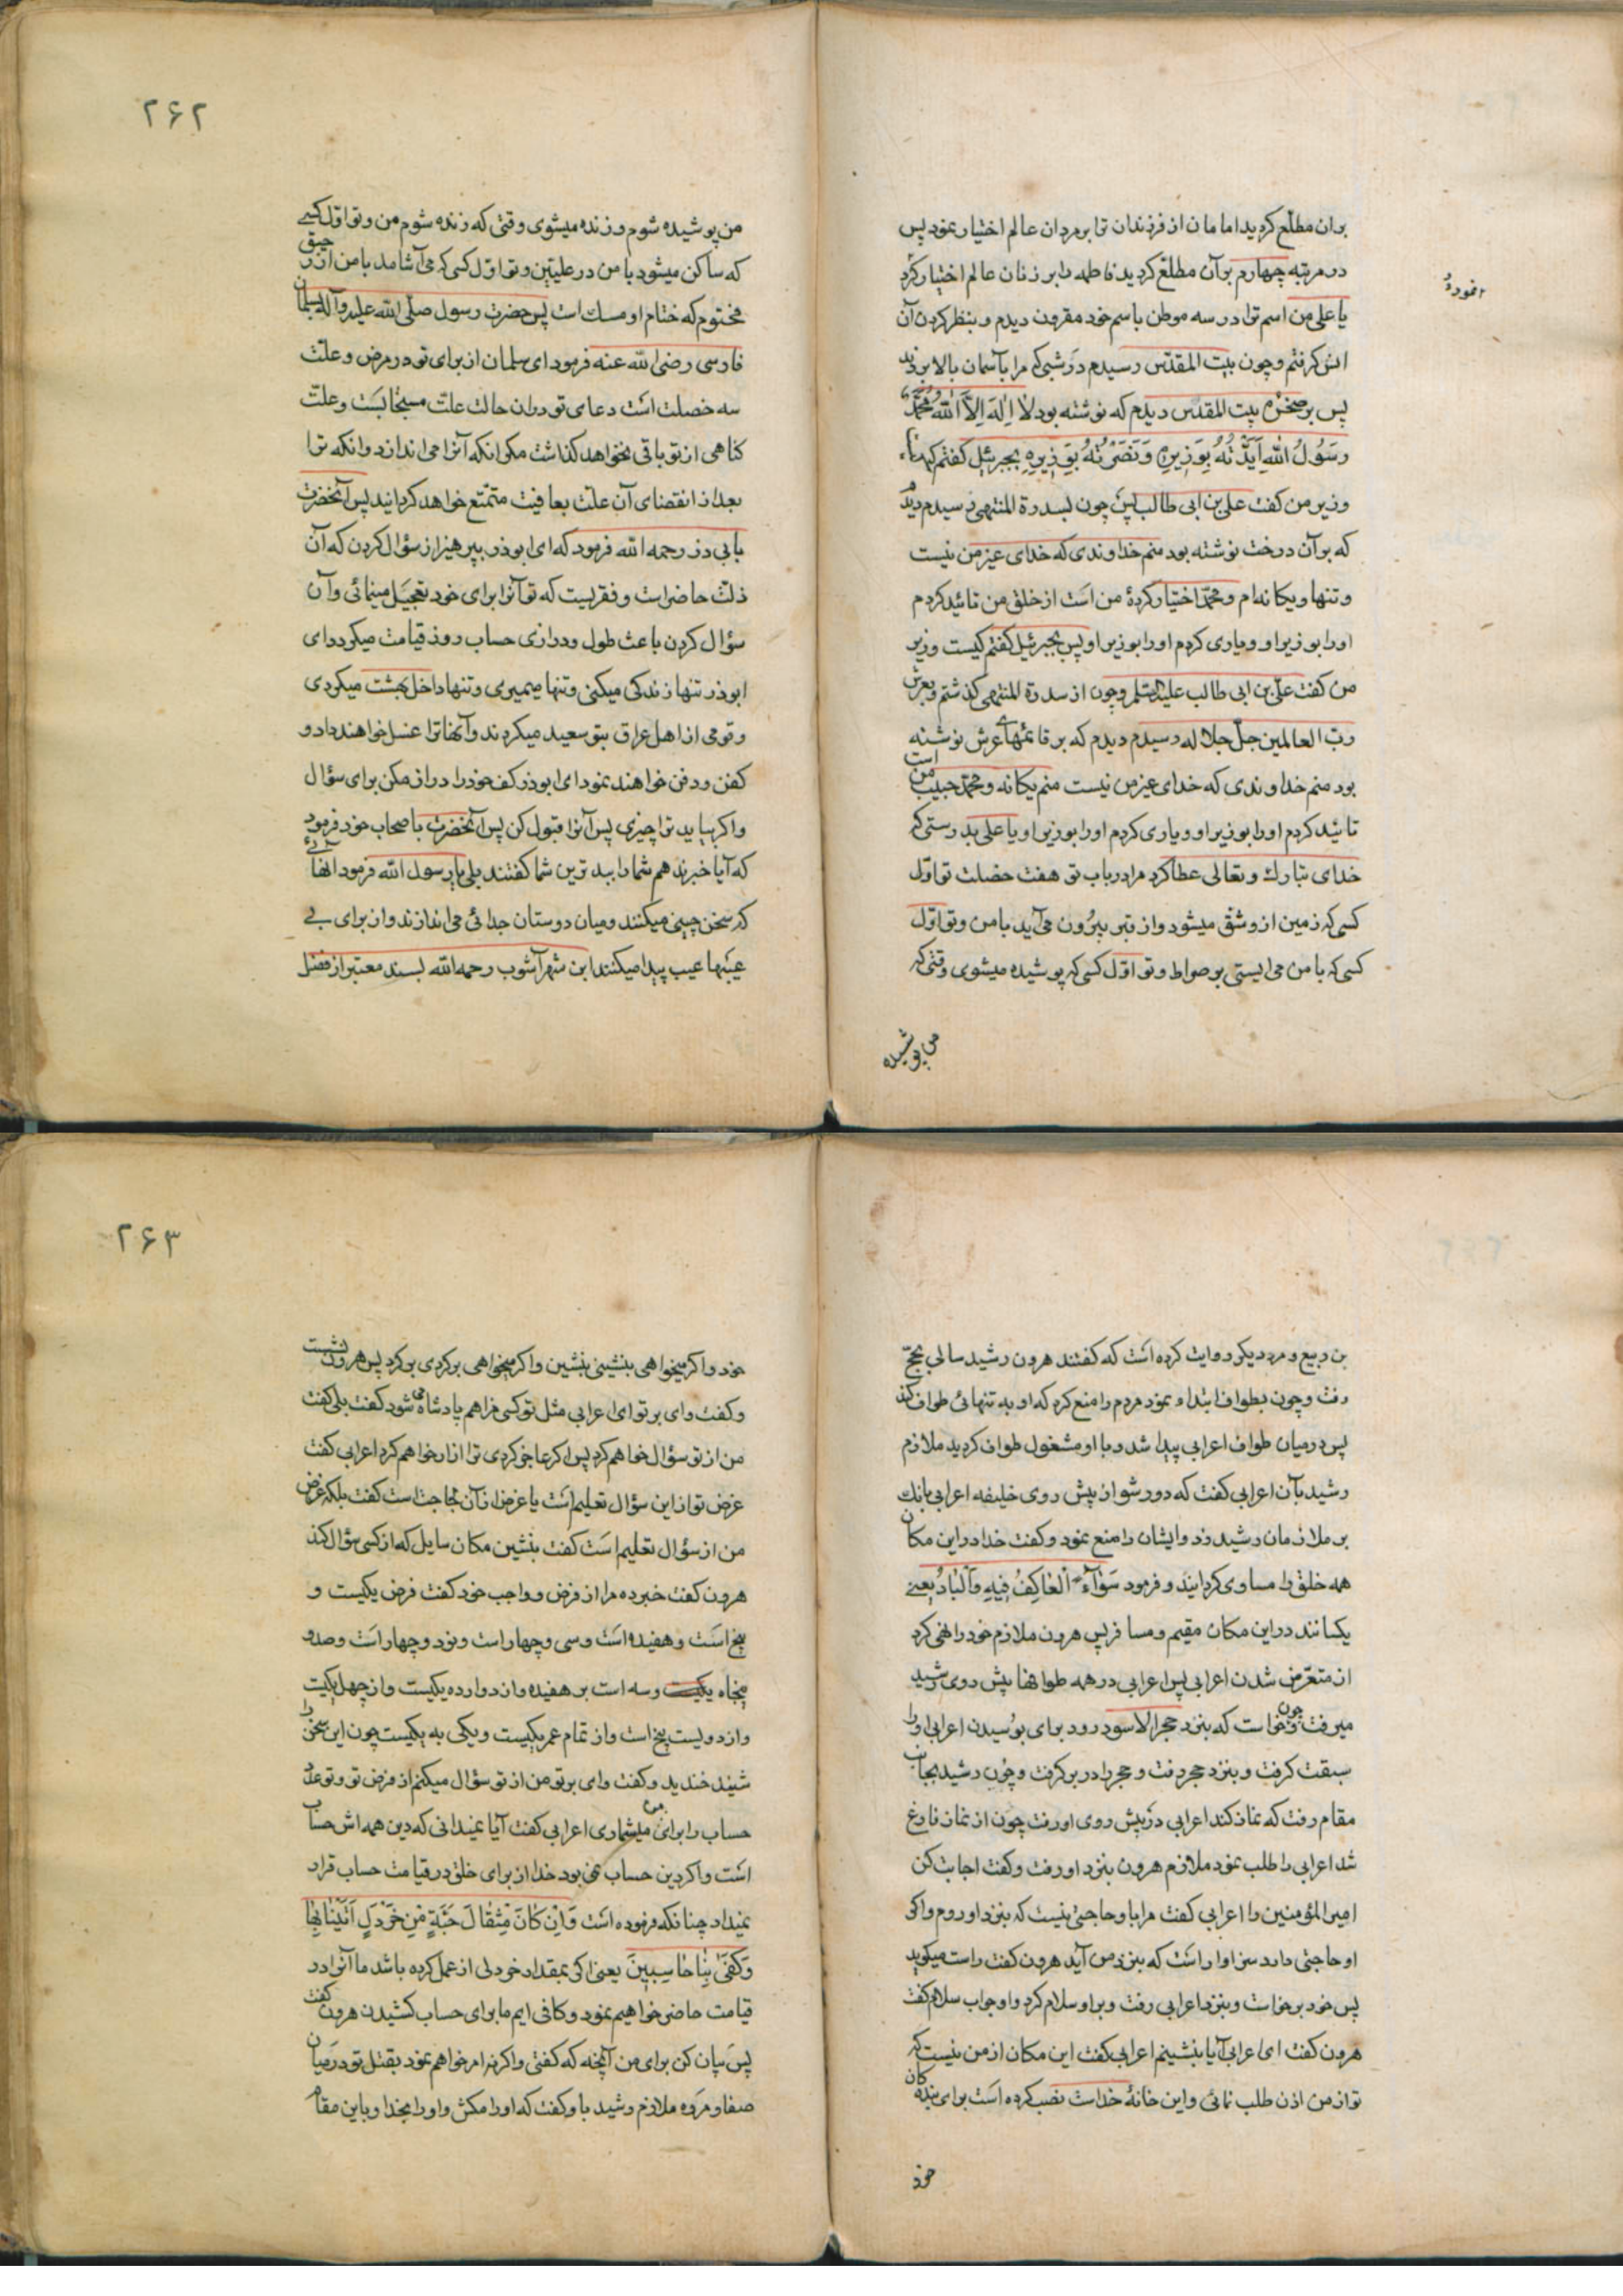 بران مطلع کردید امامان از فرزندان ترا بر مردان عالم اختیار نمود پس
در مرتبه چهارم بر آن مطلع کردید فاطمه را بر زنان عالم اختیار کرد
یا علی من اسم ترا در سه موطن باسم خود مقرون دیدم و بنظر کردن آن
انس کرفتم و چون ببیت المقدس رسیدم در شبی که مرا بآسمان بالا بردند
پس بر صخره بیت المقدس دیدم که نوشته بود لا اِلٰهَ اِلاَّ اللهُ مُحَمَّدٌ
رَسُولُ اللهِ اَیَّدْتُهُ بِوَزِیرِهِ وَنَصَرْتُهُ بِوَزِیرِهِ بجبرئیل کفتم که
وزیر من کفت علی بن ابی طالب پس چون بسدرة المنتهی رسیدم دیدم
که بر آن درخت نوشته بود منم خداوندی که خدای غیر من نیست
و تنها و یکانه ام و محمد اختیار کردهٔ من است از خلق من تائید کردم
اورا بوزیر او و یاری کردم اورا بوزیر او پس بجبرئیل کفتم کیست وزیر
من کفت علی بن ابی طالب علیه السلم و چون از سدرة المنتهی کذشتم و بعرش
رب العالمین جل جلاله رسیدم دیدم که بر قائمهای عرش نوشته
بود منم خداوندی که خدای غیر من نیست منم یکانه و محمد حبیب من است
تائید کردم اورا بوزیر او و یاری کردم اورا بوزیر او یا علی بدرستی که
خدای تبارک و تعالی عطا کرد مرا در باب تو هفت خصلت تو اول
کسی که زمین از و شق میشود و از قبر بیرون می آید با من و تو اول
کسی که با من می ایستی بر صراط و تو اول کسی که پوشیده میشوی وقتی که
من پوشیده
۲۶۲
من پوشیده شوم و زنده میشوی وقتی که زنده شوم من و تو اول کسی
که ساکن میشود با من در علیین و تو اول کسی که می آشامد با من از رحیق
مختوم که ختام او مسک است پس حضرت رسول صلی الله علیه و آله بسلمان
فارسی رضی الله عنه فرمود ای سلمان از برای تو در مرض و علت
سه خصلت است دعای تو در ان حالت علت مستجابست و علت
کناهی از تو باقی نخواهد کذاشت مکر انکه آنرا می اندازد و انکه ترا
بعد از انقضای آن علت بعافیت متمتع خواهد کردانید پس آنحضرت
بابی ذر رحمه الله فرمود که ای ابوذر بپرهیز از سؤال کردن که آن
ذلت حاضر است و فقریست که تو آنرا برای خود تعجیل مینمائی و آن
سؤال کردن باعث طول و درازی حساب روز قیامت میکردد ای
ابوذر تنها زندکی میکنی و تنها میمیری و تنها داخل بهشت میکردی
و قومی از اهل عراق بتو سعید میکردند و آنها ترا غسل خواهند داد و
کفن و دفن خواهند نمود ای ابوذر کف خود را دراز مکن برای سؤال
و اکر بیاید ترا چیزی پس آنرا قبول کن پس آنحضرت باصحاب خود فرمود
که آیا خبر ندهم شما را ببدترین شما کفتند بلی یا رسول الله فرمود انهائی
که سخن چینی میکنند و میان دوستان جدائی می اندازند و از برای بی
عیبها عیب پیدا میکنند ابن شهر آشوب رحمه الله بسند معتبر از فضل
بن ربیع و مرد دیکر روایت کرده است که کفتند هرون رشید سالی بحج
رفت و چون بطواف ابتداء نمود مردم را منع کرد که او به تنهائی طواف کند
پس در میان طواف اعرابی پیدا شد و با او مشغول طواف کردید ملازم
رشید بآن اعرابی کفت که دور شو از پیش روی خلیفه اعرابی بانک
بر ملازمان رشید زد و ایشان را منع نمود و کفت خدا در این مکان
همه خلق را مساوی کردانید و فرمود سَوٰآءً الْعٰاکِفُ فِیهِ وَالْبٰادِ یعنی
یکسانند در این مکان مقیم و مسافر پس هرون ملازم خود را نهی کرد
از متعرض شدن اعرابی پس اعرابی در همه طوافها پیش روی رشید
میرفت و چون خواست که بنزد حجر الاسود رود برای بوسیدن اعرابی او را
سبقت کرفت و بنزد حجر رفت و حجر را در بر کرفت و چون رشید بجانب
مقام رفت که نماز کند اعرابی در پیش روی او رفت چون از نماز فارغ
شد اعرابی را طلب نمود ملازم هرون بنزد او رفت و کفت اجابت کن
امیر المؤمنین را اعرابی کفت مرا باو حاجتی نیست که بنزد او روم و اکر
او حاجتی دارد سزاوار است که بنزد من آید هرون کفت راست میکوید
پس خود برخواست و بنزد اعرابی رفت و بر او سلام کرد و او جواب سلام کفت
هرون کفت ای اعرابی آیا بنشینم اعرابی کفت این مکان از من نیست که
تو از من اذن طلب نمائی و این خانهٔ خداست نصب کرده است برای بندکان
خود
۲۶۳
خود و اکر میخواهی بنشینی بنشین و اکر میخواهی برکردی برکرد پس هرون نشست
و کفت وای بر تو ای اعرابی مثل تو کسی مزاهم پادشاه می شود کفت بلی کفت
من از تو سؤال خواهم کرد پس اکر عاجز کردی ترا ازار خواهم کرد اعرابی کفت
غرض تو از این سؤال تعلیم است یا غرض از آن لجاجت است کفت بلکه غرض
من از سؤال تعلیم است کفت بنشین مکان سایل که از کسی سؤال کند
هرون کفت خبر ده مرا از فرض و واجب خود کفت فرض یکیست و
پنج است و هفیده است و سی و چهار است و نود و چهار است و صد و
پنجاه و سه است بر هفیده و از دوارده یکیست و از چهل یکیت
و از دویست پنج است و از تمام عمر یکیست و یکی به یکیست چون این سخن را
شنید خندید و کفت وای بر تو من از تو سؤال میکنم از فرض تو و تو عدد
حساب را برای من میشماری اعرابی کفت آیا نمیدانی که دین همه اش حساب
است و اکر دین حساب نمی بود خدا از برای خلق در قیامت حساب قرار
نمیداد چنانکه فرموده است وَاِنْ کٰانَ مِثْقٰالَ حَبَّةٍ مِنْ خَرْدَلٍ اَتَیْنٰا بِهٰا
وَکَفٰی بِنٰا حٰاسِبِینَ یعنی اکر بمقدار خردلی از عمل کرده باشد ما آنرا در
قیامت حاضر خواهیم نمود و کافی ایم ما برای حساب کشیدن هرون کفت
پس بیان کن برای من آنچه که کفتی و اکر نه امر خواهم نمود بقتل تو در میان
صفا و مروه ملازم رشید باو کفت که اورا مکش و اورا بخدا و باین مقام